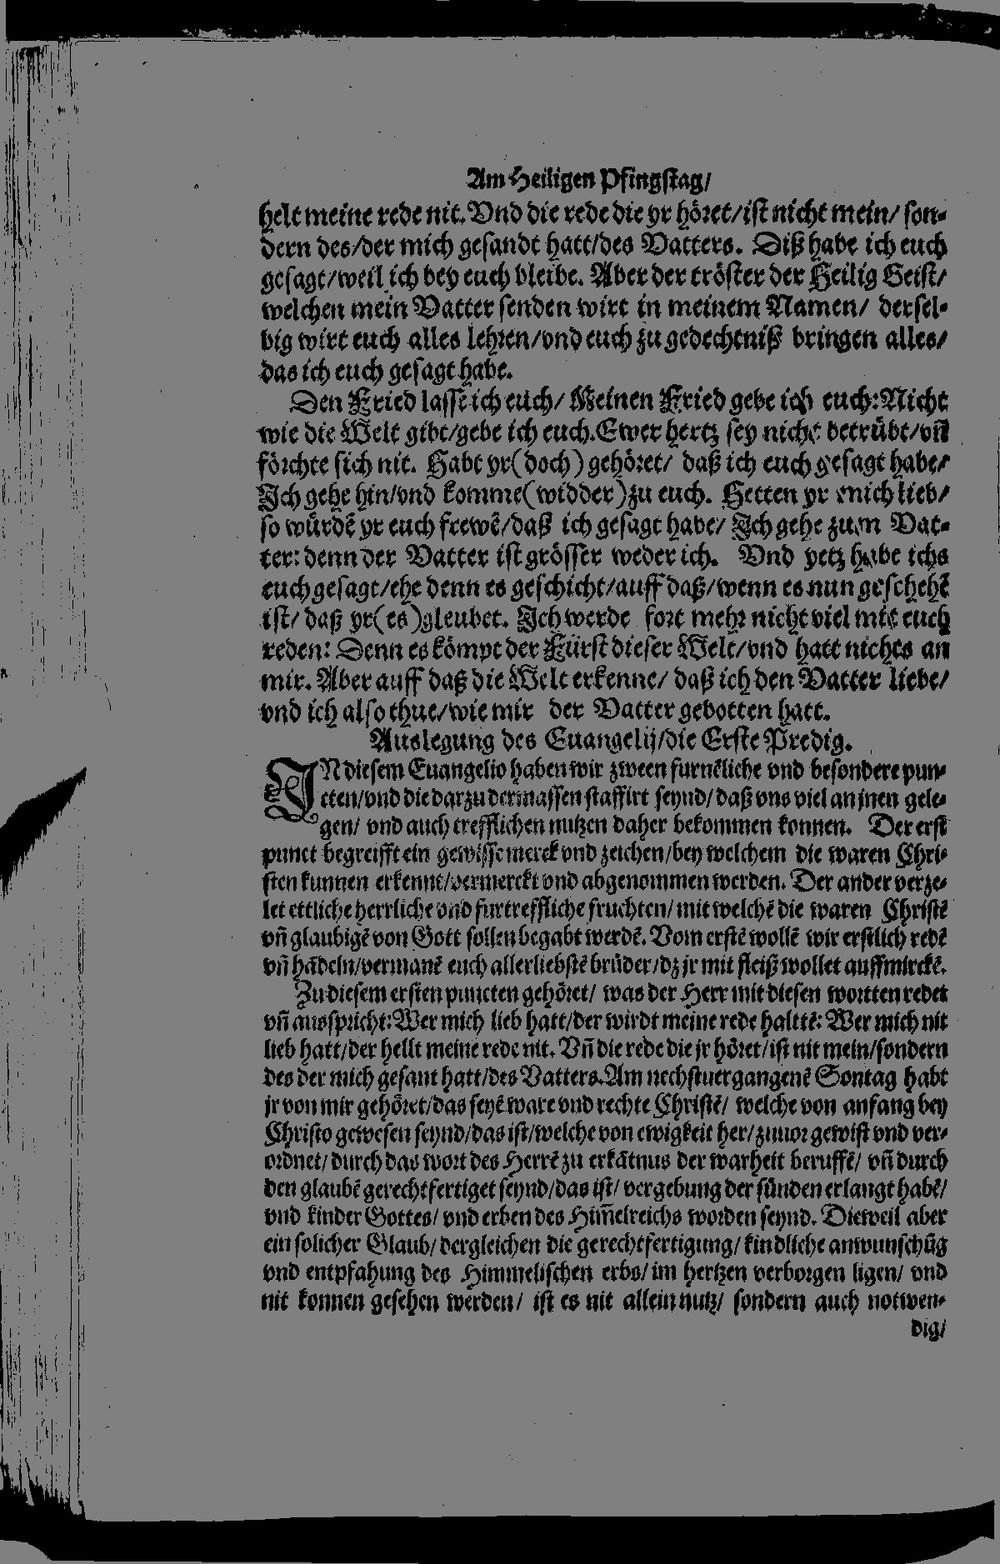 Am Heiligen Pfingstag/
helt meine rede nit. Vnd die rede die yr höret/ist nicht mein/ son-
dern des/der mich gesandt hatt/des Vatters. Diß habe ich euch
gesagt/weil ich bey euch bleibe. Aber der tröster der Heilig Geist/
welchen mein Vatter senden wirt in meinem Namen/ dersel-
big wirt euch alles lehren/vnd euch zu gedechtniß bringen alles/
das ich euch gesagt habe.
Den Fried lasse ich euch/ Meinen Fried gebe ich euch: Nicht
wie die Welt gibt/gebe ich euch. Ewer hertz sey nicht betrübt/vñ
förchte sich nit. Habt yr (doch) gehöret/ daß ich euch gesagt habe/
Ich gehe hin/vnd komme (widder) zu euch. Hetten yr mich lieb/
so würdẽ yr euch frewẽ/daß ich gesagt habe/ Ich gehe zum Vat-
ter: denn der Vatter ist grösser weder ich. Vnd yetz habe ichs
euch gesagt/ehe denn es geschicht/auff daß/wenn es nun geschehẽ
ist/ daß yr (es) gleubet. Ich werde fort mehr nicht viel mit euch
reden: Denn es kömpt der Fürst dieser Welt/vnd hatt nichts an
mir. Aber auff daß die Welt erkenne/ daß ich den Vatter liebe/
vnd ich also thue/wie mir der Vatter gebotten hatt.
Auslegung des Euangelij/die Erste Predig.
IN diesem Euangelio haben wir zween furnẽliche vnd besondere pun-
cten/vnd die darzu dermassen staffirt seynd/daß vns viel an jnen gele-
gen/ vnd auch trefflichen nutzen daher bekommen konnen. Der erst
punct begreifft ein gewisse merck vnd zeichen/bey welchem die waren Chri-
sten kunnen erkennt/vermerckt vnd abgenommen werden. Der ander verze-
let ettliche herrliche vnd furtreffliche fruchten/ mit welchẽ die waren Christẽ
vñ glaubigẽ von Gott sollen begabt werdẽ. Vom erstẽ wollẽ wir erstlich redẽ
vñ hãdeln/vermanẽ euch allerliebstẽ brüder/dz jr mit fleiß wollet auffmirckẽ.
Zu diesem ersten puncten gehöret/ was der Herr mit diesen wortten redet
vñ ausspricht: Wer mich lieb hatt/der wirdt meine rede halttẽ: Wer mich nit
lieb hatt/der hellt meine rede nit. Vñ die rede die jr höret/ist nit mein/sondern
des der mich gesant hatt/des Vatters. Am nechstuergangenẽ Sontag habt
jr von mir gehöret/das seyẽ ware vnd rechte Christẽ/ welche von anfang bey
Christo gewesen seynd/das ist/welche von ewigkeit her/zuuor gewist vnd ver-
ordnet/durch das wort des Herrẽ zu erkãtnus der warheit beruffẽ/ vñ durch
den glaubẽ gerechtfertiget seynd/das ist/ vergebung der sünden erlangt habẽ/
vnd kinder Gottes/ vnd erben des Him̃elreichs worden seynd. Dieweil aber
ein solicher Glaub/ dergleichen die gerechtfertigung/ kindliche anwunschũg
vnd entpfahung des Himmelischen erbs/ im hertzen verborgen ligen/ vnd
nit konnen gesehen werden/ ist es nit allein nutz/ sondern auch notwen-
dig/